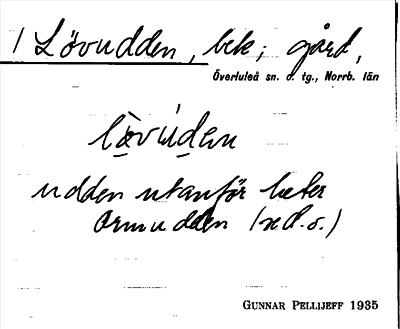 / Lövudden, bek; gård,
Överluleå sn. o. tg., Norrb. län
lòvúden
udden utanför heter
Ormudden (se d. o.)
GUNNAR PELLIJEFF 1935